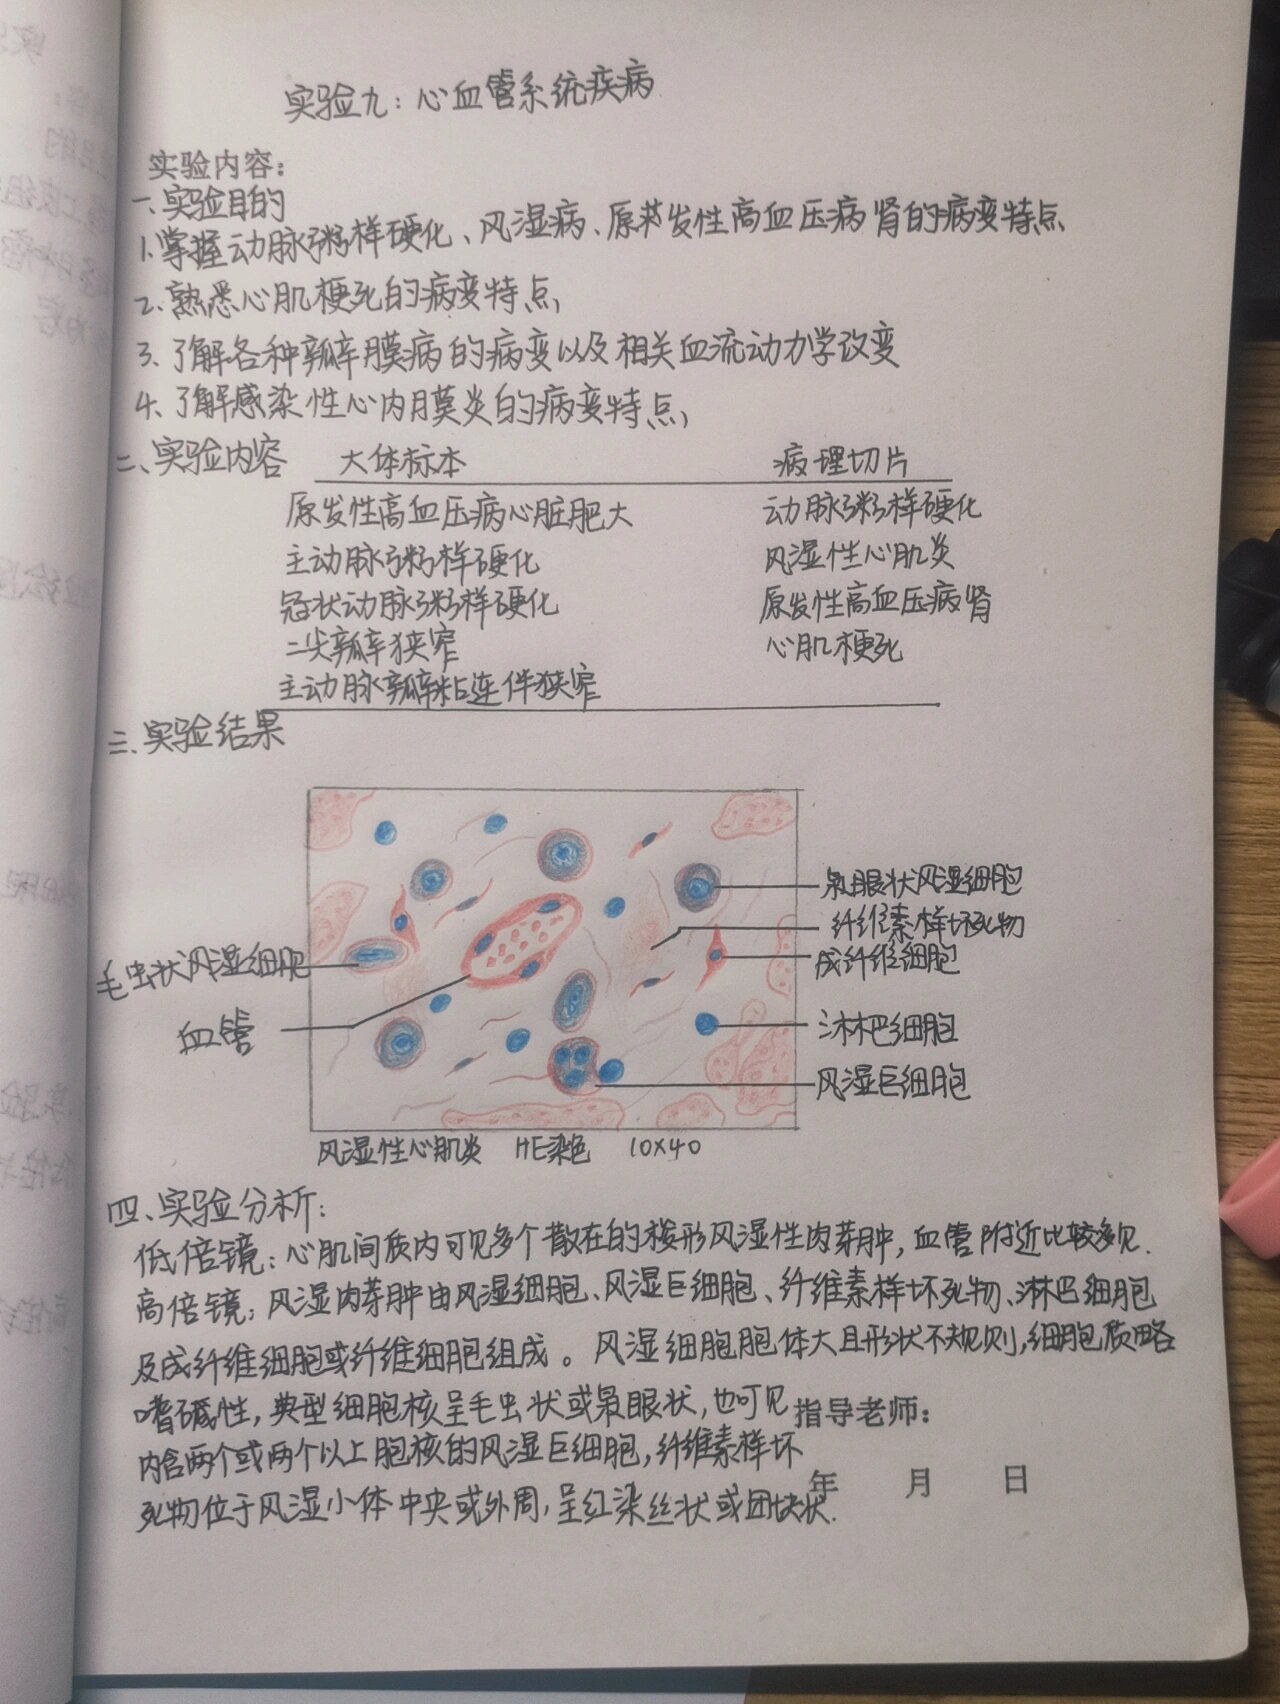 实验九：心血管系统疾病
实验内容：
一、实验目的
1、掌握动脉粥样硬化、风湿病、原发性高血压病肾的病变特点
2、熟悉心肌梗死的病变特点
3、了解各种瓣膜病的病变以及相关血流动力学改变
4、了解感染性心内膜炎的病变特点
二、实验内容 大体标本 病理切片
原发性高血压病心脏肥大 动脉粥样硬化
主动脉粥样硬化 风湿性心肌炎
冠状动脉粥样硬化 原发性高血压病肾
二尖瓣狭窄 心肌梗死
主动脉瓣粘连伴狭窄
三、实验结果
枭眼状风湿细胞
纤维素样坏死物
毛虫状风湿细胞 成纤维细胞
血管 淋巴细胞
风湿巨细胞
风湿性心肌炎 HE染色 10×40
四、实验分析：
低倍镜：心肌间质内可见多个散在的梭形风湿性肉芽肿，血管附近比较多见.
高倍镜：风湿肉芽肿由风湿细胞、风湿巨细胞、纤维素样坏死物、淋巴细胞
及成纤维细胞或纤维细胞组成。风湿细胞胞体大且形状不规则，细胞质略
嗜碱性，典型细胞核呈毛虫状或枭眼状，也可见 指导老师：
内含两个或两个以上胞核的风湿巨细胞，纤维素样坏
年 月 日
死物位于风湿小体中央或外周，呈红染丝状或团块状.